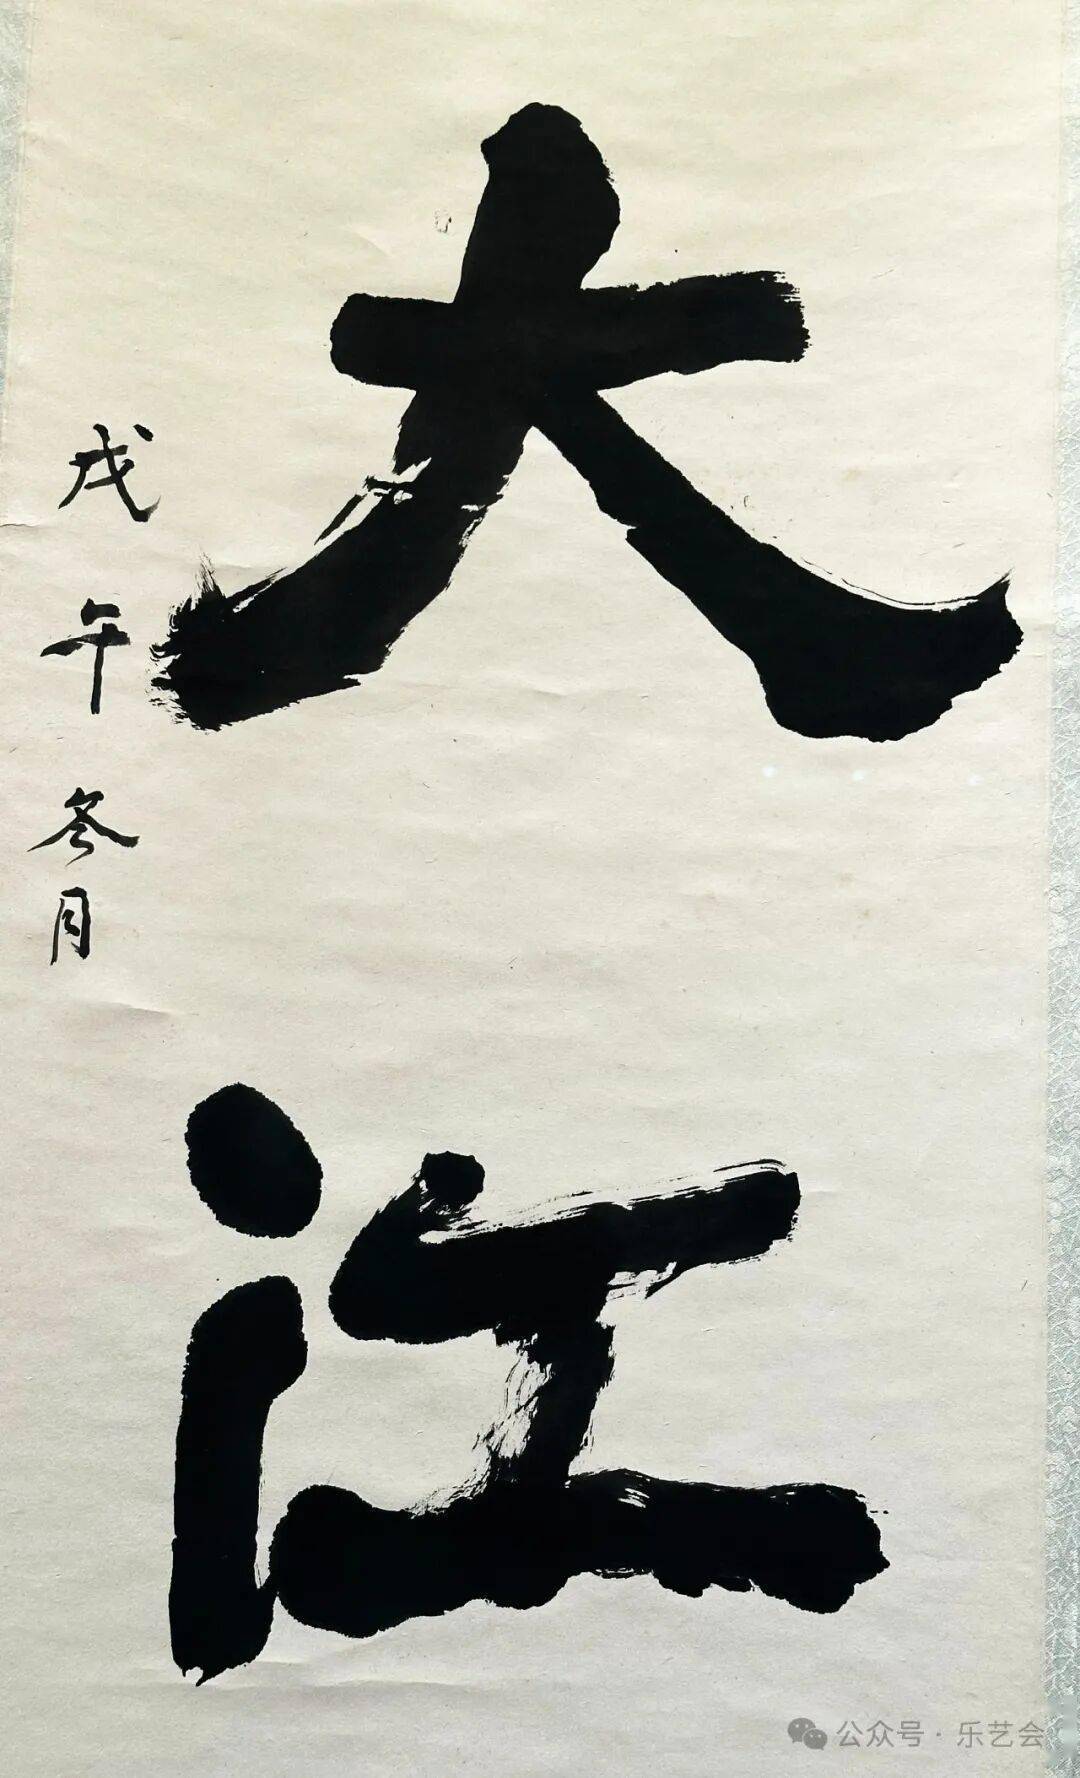 大江
戊午冬月
公众号·乐艺会